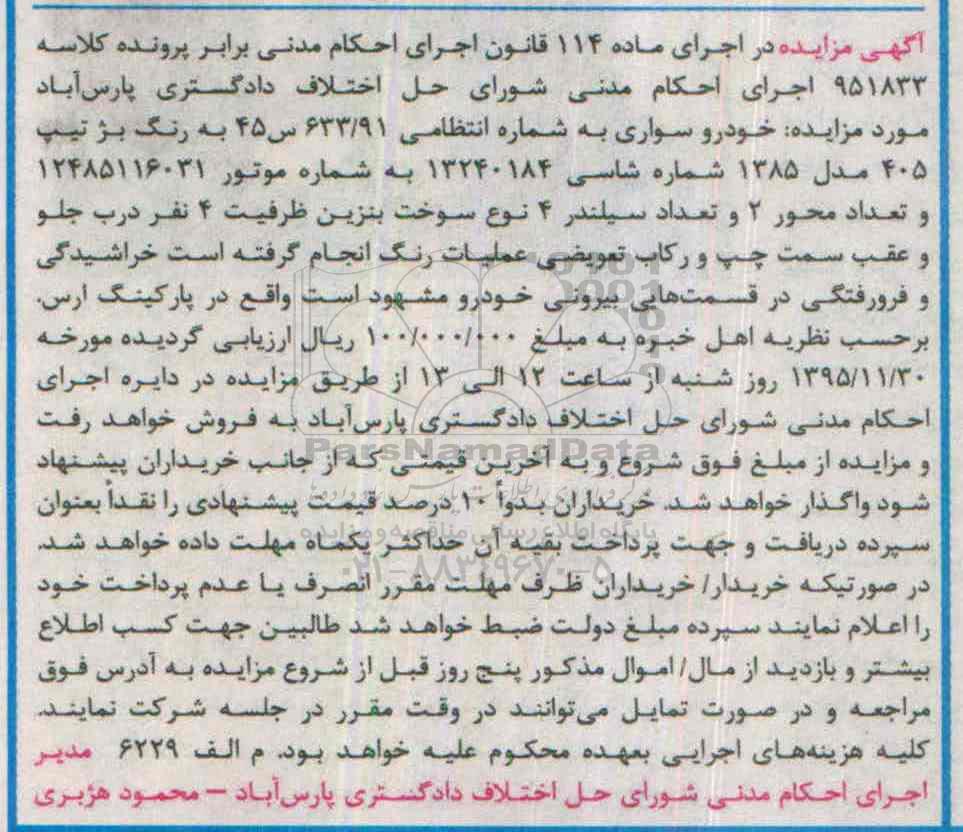 آگهی مزایده در اجرای ماده ۱۱۴ قانون اجرای احکام مدنی برابر پرونده کلاسه
۹۵۱۸۳۳ اجرای احکام مدنی شورای حل اختلاف دادگستری پارس‌آباد
مورد مزایده: خودرو سواری به شماره انتظامی ۶۳۳/۹۱ س۴۵ به رنگ بژ تیپ
۴۰۵ مدل ۱۳۸۵ شماره شاسی ۱۳۲۴۰۱۸۴ به شماره موتور ۱۲۴۸۵۱۱۶۰۳۱
و تعداد محور ۲ و تعداد سیلندر ۴ نوع سوخت بنزین ظرفیت ۴ نفر درب جلو
و عقب سمت چپ و رکاب تعویضی عملیات رنگ انجام گرفته است خراشیدگی
و فرورفتگی در قسمت‌هایی بیرونی خودرو مشهود است واقع در پارکینگ ارس.
برحسب نظریه اهل خبره به مبلغ ۱۰۰/۰۰۰/۰۰۰ ریال ارزیابی گردیده مورخه
۱۳۹۵/۱۱/۳۰ روز شنبه از ساعت ۱۲ الی ۱۳ از طریق مزایده در دایره اجرای
احکام مدنی شورای حل اختلاف دادگستری پارس‌آباد به فروش خواهد رفت
ParsNamadData
و مزایده از مبلغ فوق شروع و به آخرین قیمتی که از جانب خریداران پیشنهاد
شود واگذار خواهد شد. خریداران بدواً ۱۰ درصد قیمت پیشنهادی را نقداً بعنوان
پایگاه اطلاع رسانی مناقصه و مزایده
سپرده دریافت و جهت پرداخت بقیه آن حداکثر یکماه مهلت داده خواهد شد.
۰۲۱-۸۸۳۴۹۶۷۰-۵
در صورتیکه خریدار/ خریداران ظرف مهلت مقرر انصرف یا عدم پرداخت خود
را اعلام نمایند سپرده مبلغ دولت ضبط خواهد شد طالبین جهت کسب اطلاع
بیشتر و بازدید از مال/ اموال مذکور پنج روز قبل از شروع مزایده به آدرس فوق
مراجعه و در صورت تمایل می‌توانند در وقت مقرر در جلسه شرکت نمایند.
کلیه هزینه‌های اجرایی بعهده محکوم علیه خواهد بود. م الف ۶۲۲۹ مدیر
اجرای احکام مدنی شورای حل اختلاف دادگستری پارس‌آباد – محمود هژبری